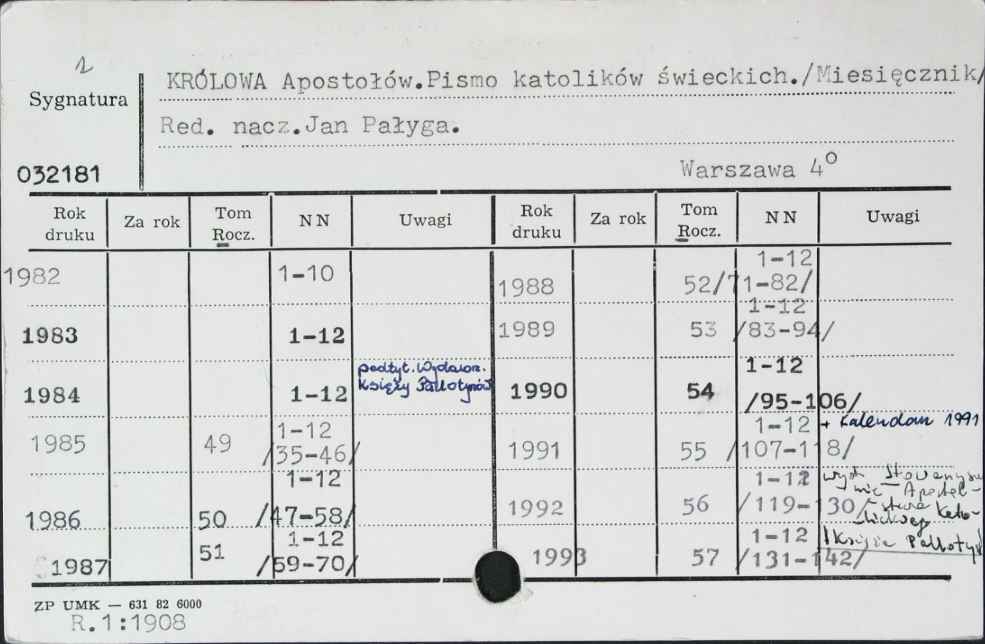 1
KRÓLOWA Apostołów.Pismo katolików świeckich./Miesięcznik/
Sygnatura
Red. nacz.Jan Pałyga.
032181
Warszawa 4°
Rok druku Za rok Tom Rocz. N N Uwagi Rok druku Za rok Tom Rocz. N N Uwagi
1982 1-10 1988 52 1-12 /71-82/
1983 1-12 1989 53 1-12 /83-94/
1984 1-12 podtyt. Wydawn. Księży Pallotynów 1990 54 1-12 /95-106/
1985 49 1-12 /35-46/ 1991 55 1-12 /107-118/ + Kalendarz 1991
1986 50 1-12 /47-58/ 1992 56 1-12 /119-130/ Stowarzysze nie Apostol- stwa Kato- lickiego
1987 51 1-12 /59-70/ 1993 57 1-12 /131-142/ Księża Pallotyni
ZP UMK — 631 82 6000
R.1:1908